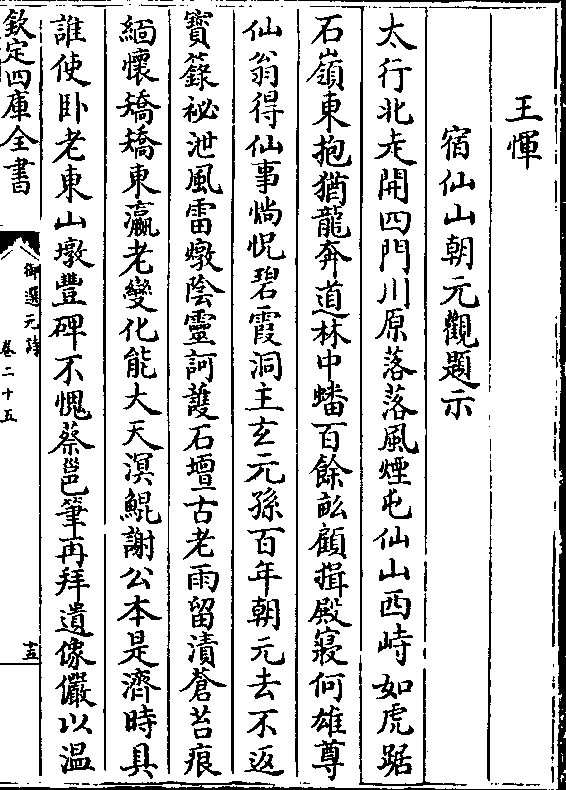 王惲
宿仙山朝元觀題示
太行北走開四門川原落落風煙屯仙山西峙如虎踞
石嶺東抱猶龍奔道林中蟠百餘畝顧揖殿寢何雄尊
仙翁得仙事惝怳碧霞洞主玄元孫百年朝元去不返
寶籙祕泄風雷燉陰靈訶護石壇古老雨留漬蒼苔痕
緬懷矯矯東瀛老變化能大天溟鯤謝公本是濟時具
誰使卧老東山墩豐碑不愧蔡邕筆再拜遺像儼以温
欽定四庫全書
御選元詩
卷二十五